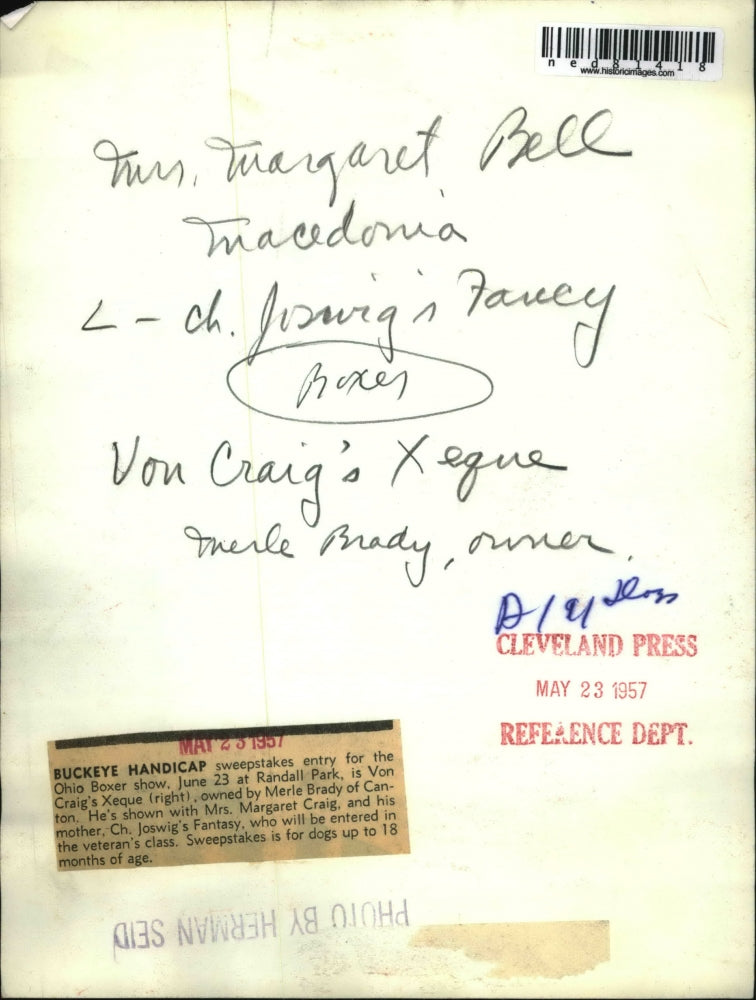 ned81418
www.historicimages.com
Mrs. Margaret Bell
Macedonia
L - ch. Joswig's Fancy
Boxer
Von Craig's Xeque
Merle Brady, owner.
Dogs
CLEVELAND PRESS
MAY 23 1957
REFERENCE DEPT.
MAY 23 1957
BUCKEYE HANDICAP sweepstakes entry for the
Ohio Boxer show, June 23 at Randall Park, is Von
Craig's Xeque (right), owned by Merle Brady of Can-
ton. He's shown with Mrs. Margaret Craig, and his
mother, Ch. Joswig's Fantasy, who will be entered in
the veteran's class. Sweepstakes is for dogs up to 18
months of age.
PHOTO BY HERMAN SEID